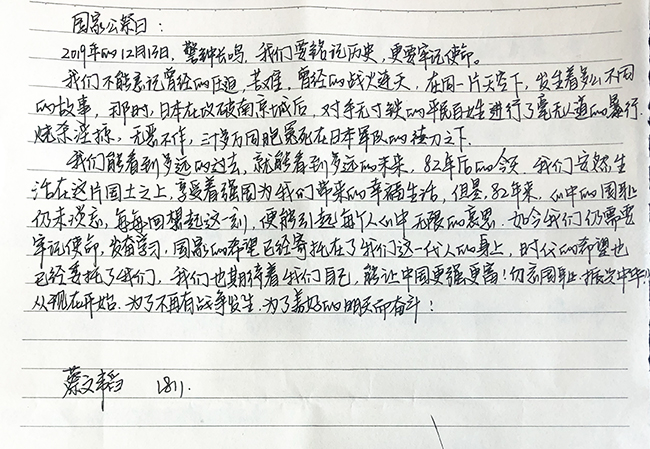 国家公祭日：
2019年的12月13日，警钟长鸣，我们要铭记历史，更要牢记使命。
我们不能忘记曾经的压迫，苦难，曾经的战火连天，在同一片天空下，发生着多么不同
的故事，那时，日本在攻破南京城后，对手无寸铁的平民百姓进行了毫无人道的暴行
烧杀淫掠，无恶不作，三十多万同胞冤死在日本军队的刺刀之下.
我们能看到多远的过去，就能看到多远的未来，82年后的今天，我们安然生
活在这片国土之上，享受着强国为我们带来的幸福生活，但是，82年来，心中的国耻
仍未淡忘，每每回想起这一刻，便能引起每个人心中无限的哀思.如今我们仍需要
牢记使命，发奋学习，国家的希望已经寄托在了我们这一代人的身上，时代的希望也
已经委托了我们，我们也期待着我们自己，能让中国更强更富！勿忘国耻，振兴中华，
从现在开始.为了不再有战争发生.为了美好的明天而奋斗！
蔡文韬 1811.